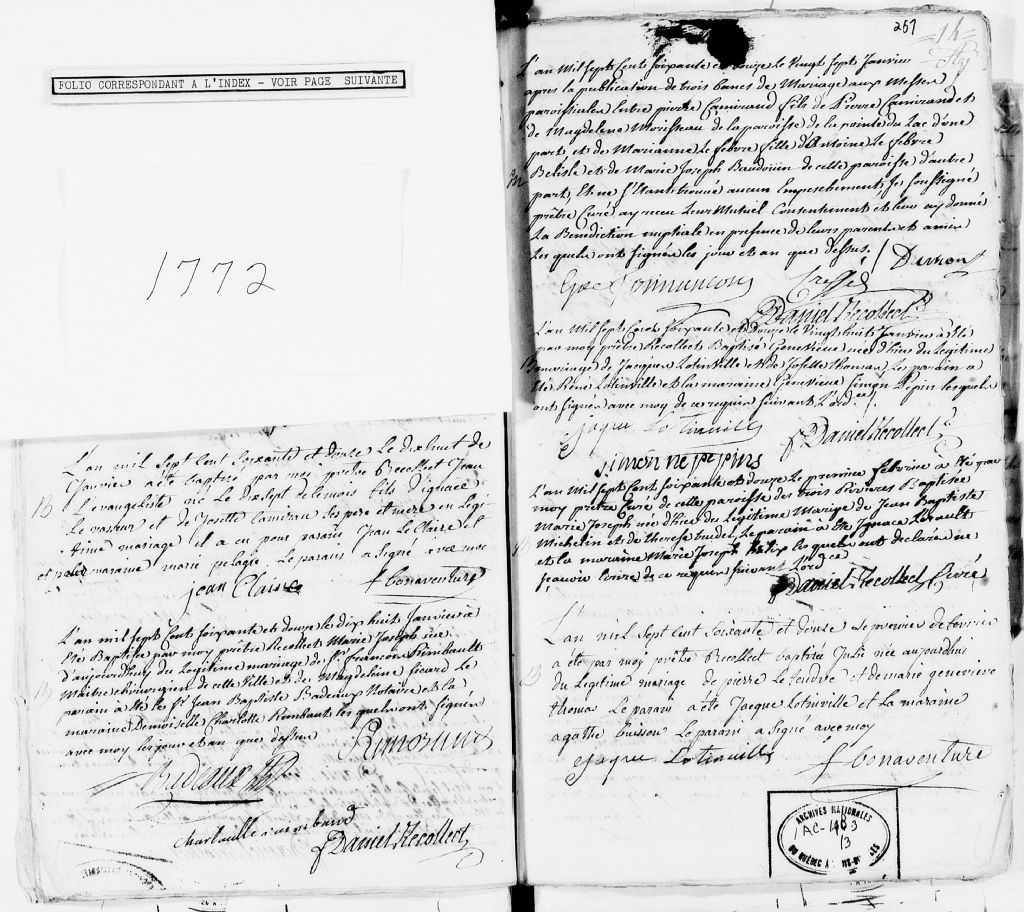 FOLIO CORRESPONDANT A L'INDEX - VOIR PAGE SUIVANTE
1772
L'an mil sept cent soixante et douze Le dixhuit de
Janvier a été baptisé par moy prêtre Recollect Jean
B L'evangeliste né Le dix sept de ce mois fils d'ignace
Le vasseur et de Josette Camiran ses pere et mere en Legi
time mariage il a eu pour parain Jean Le Claire et
et pour maraine marie pelagie Le parain a signé avec moy
jean Claire
f bonaventure
L'an mil sept cent soixante et douze Le dix huit Janvier à
été Baptisée par moy prêtre Recollect Marie Joseph née
d'aujourdhuy du Légitime mariage de Sr françois Rimbault
B Maître chirurgien de cette Ville et de Magdelaine Sicard Le
parain à été Le Sr Jean Baptiste Badeaux Notaire et La
maraine Demoiselle Charlotte Rimbaut les quels ont signés
avec moy les jour et an que dessus
Rimbault
Badeaux
f Daniel Recollect
267
L'an Mil Sept Cent soixante et douze Le Vingt Sept Janvier
apres la publication de trois bancs de Mariage aux Messes
paroissiales Entre pierre Camirand fils de Pierre Camirand et
de Magdelene Moriseau de la paroisse de la pointe du Lac d'une
part et de Marianne Le febvre fille d'Antoine Le febvre
Belisle et de Marie Joseph Baudouin de cette paroisse d'autre
M part, Et ne s'etant trouvé aucun Empeschement, Je Soussigné
prêtre Curé ay receu Leur Mutuel Consentement et leur ay donné
La Benediction nuptiale en presence de leurs parents et amis
Les quels ont signés les jour et an que dessus.
Cressé
f Daniel Recollect
L'an Mil Sept Cent soixante et Douze le Vingt huit Janvier à été
par moy prêtre Recollect Baptisé Genevieve née d'hier du Legitime
B mariage de Jacques Lotinville et de Josette thomas, Le parain a
été René Lotinville et la maraine Genevieve Simon Pepin lesquels
ont signés avec moy de ce requis suivant L'ord.
Jaque Lotinville
f Daniel Recollect
simon
L'an Mil Sept Cent soixante et Douze Le premier febvrier a été par
moy prêtre Curé de cette paroisse des trois Rivieres Baptisée
Marie Joseph née d'hier du Legitime Mariage de Jean Baptiste
B Michelin et de therese trudel Le parain à été Ignace
et la maraine Marie Joseph les quels ont declaré ne
sçavoir Ecrire de ce requis suivant L'ord
Daniel Recollect Curé
L'an mil sept cent soixante et douse Le premier de fevrier
a été par moy prêtre Recollect baptisée Julie née aujourdhui
B du Legitime mariage de pierre Le tendre et de marie genevieve
thomas Le parain a été Jacque Lotinville et La maraine
agathe buisson Le parain a signé avec moy
Jaque Lotinville
f bonaventure
ARCHIVES NATIONALES